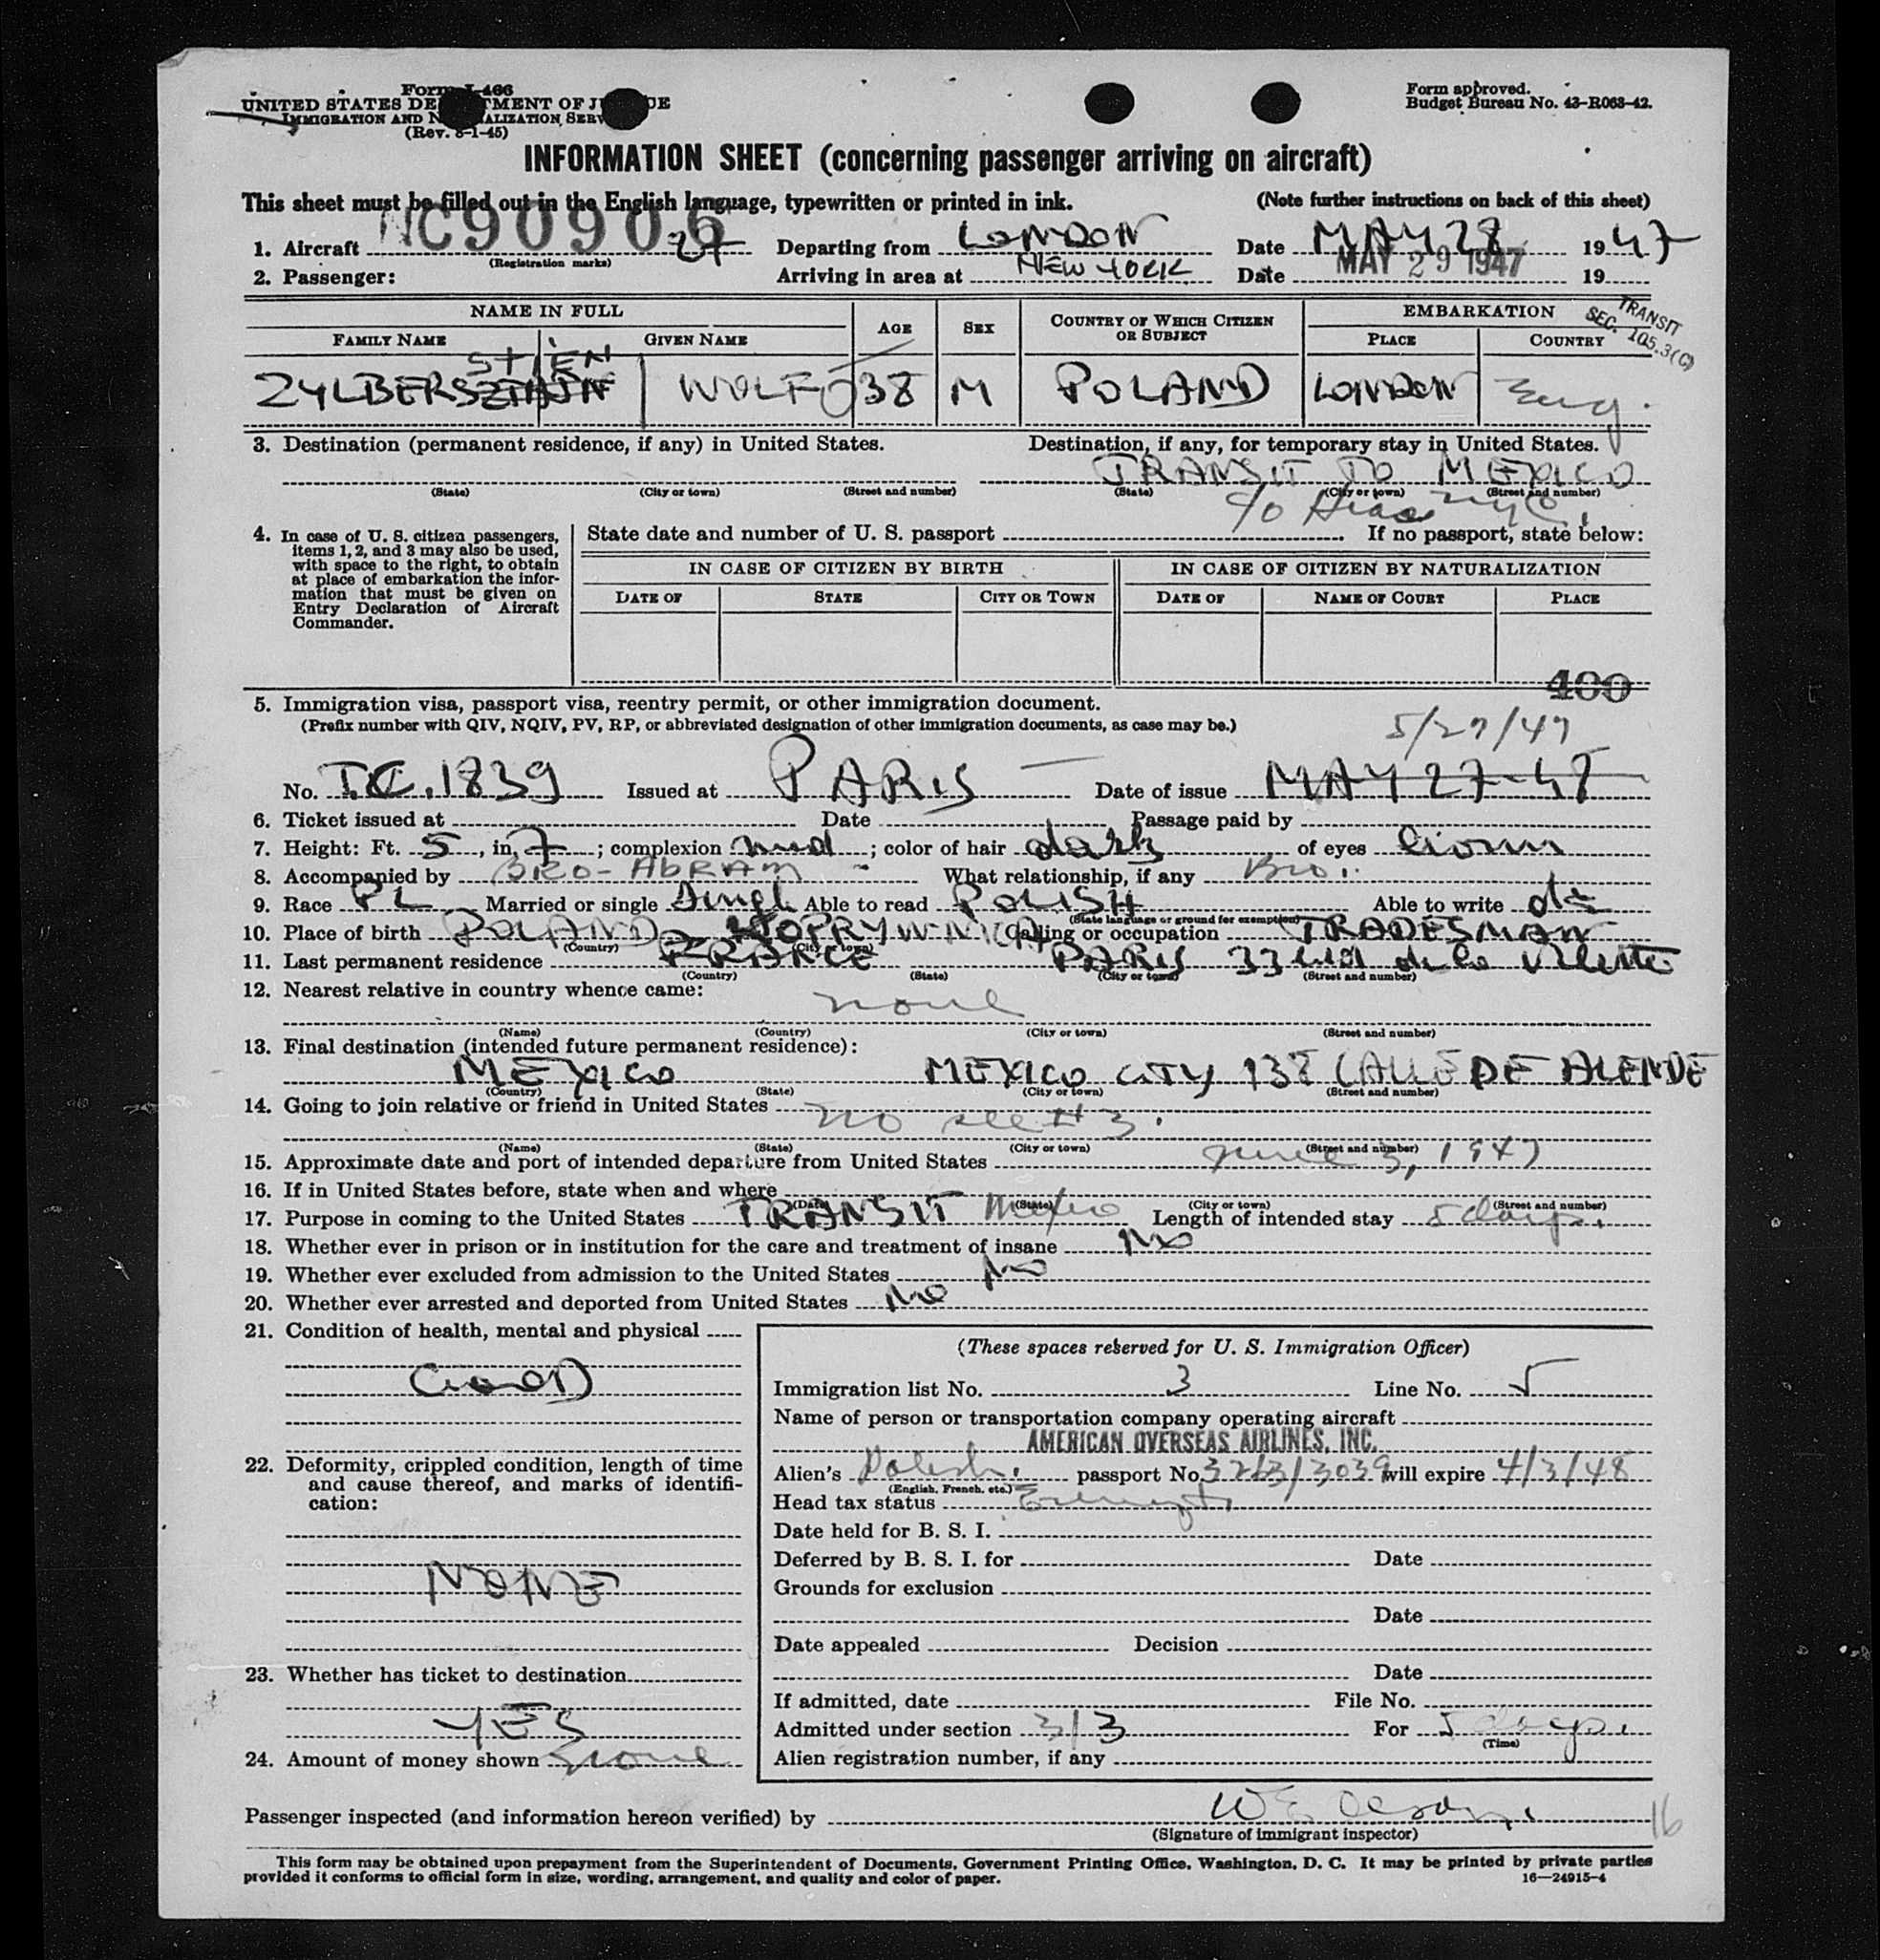 Form I-466
UNITED STATES DE TMENT OF J E
IMMIGRATION AND N ALIZATION SERV
(Rev. 8-1-45)
Form approved.
Budget Bureau No. 43-R068-42.
INFORMATION SHEET (concerning passenger arriving on aircraft)
This sheet must be filled out in the English language, typewritten or printed in ink. (Note further instructions on back of this sheet)
1. Aircraft NC90906 27 Departing from LONDON Date MAY 28 1947
(Registration marks)
2. Passenger: Arriving in area at NEW YORK Date MAY 29 1947 19
TRANSIT
SEC. 105.3(C)
NAME IN FULL AGE SEX COUNTRY OF WHICH CITIZEN OR SUBJECT EMBARKATION
FAMILY NAME GIVEN NAME PLACE COUNTRY
STIEN
ZYLBERSZTAJN WOLF 38 M POLAND LONDON Eng.
3. Destination (permanent residence, if any) in United States. Destination, if any, for temporary stay in United States.
TRANSIT TO MEXICO
(State) (City or town) (Street and number) (State) (City or town) (Street and number)
c/o Hias NYC.
4. In case of U. S. citizen passengers, items 1, 2, and 3 may also be used, with space to the right, to obtain at place of embarkation the information that must be given on Entry Declaration of Aircraft Commander.
State date and number of U. S. passport If no passport, state below:
IN CASE OF CITIZEN BY BIRTH IN CASE OF CITIZEN BY NATURALIZATION
DATE OF STATE CITY OR TOWN DATE OF NAME OF COURT PLACE
400
5. Immigration visa, passport visa, reentry permit, or other immigration document.
(Prefix number with QIV, NQIV, PV, RP, or abbreviated designation of other immigration documents, as case may be.)
5/27/47
No. T.C. 1839 Issued at PARIS Date of issue MAY 27-48
6. Ticket issued at Date Passage paid by
7. Height: Ft. 5, in. 7; complexion med; color of hair dark of eyes
8. Accompanied by BRO- ABRAM What relationship, if any Bro.
9. Race PL Married or single Singl Able to read POLISH Able to write do
(State language or ground for exemption)
10. Place of birth POLAND KOPRYWNICA Calling or occupation TRADESMAN
(Country) (City or town)
11. Last permanent residence FRANCE PARIS 33 de la Villette
(Country) (State) (City or town) (Street and number)
12. Nearest relative in country whence came:
none
(Name) (Country) (City or town) (Street and number)
13. Final destination (intended future permanent residence):
MEXICO MEXICO CITY 138 CALLE DE ALENDE
(Country) (State) (City or town) (Street and number)
14. Going to join relative or friend in United States no see #3.
(Name) (State) (City or town) (Street and number)
15. Approximate date and port of intended departure from United States June 3, 1947
16. If in United States before, state when and where
(Date) (State) (City or town) (Street and number)
17. Purpose in coming to the United States TRANSIT Mexico Length of intended stay 5 days.
18. Whether ever in prison or in institution for the care and treatment of insane No
19. Whether ever excluded from admission to the United States No
20. Whether ever arrested and deported from United States No
21. Condition of health, mental and physical
GooD
22. Deformity, crippled condition, length of time and cause thereof, and marks of identification:
NONE
23. Whether has ticket to destination
YES
24. Amount of money shown none
(These spaces reserved for U. S. Immigration Officer)
Immigration list No. 3 Line No. 5
Name of person or transportation company operating aircraft
AMERICAN OVERSEAS AIRLINES, INC.
Alien's Polish. passport No. 32/3/3039 will expire 4/3/48
(English, French, etc.)
Head tax status Exempt
Date held for B. S. I.
Deferred by B. S. I. for Date
Grounds for exclusion
Date
Date appealed Decision
Date
If admitted, date File No.
Admitted under section 3/3 For 5 days.
(Time)
Alien registration number, if any
Passenger inspected (and information hereon verified) by W E Olson
(Signature of immigrant inspector)
16
This form may be obtained upon prepayment from the Superintendent of Documents, Government Printing Office, Washington, D. C. It may be printed by private parties
provided it conforms to official form in size, wording, arrangement, and quality and color of paper. 16—24915-4